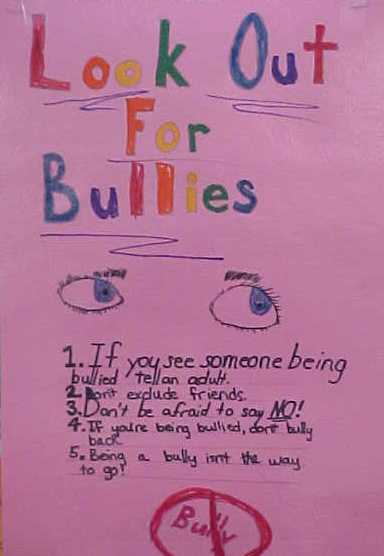 Look Out
For
Bullies
1. If you see someone being
bullied tell an adult.
2. Dont exclude friends.
3. Don't be afraid to say NO!
4. If you're being bullied, dont bully
back
5. Being a bully isn't the way
to go!
Bully